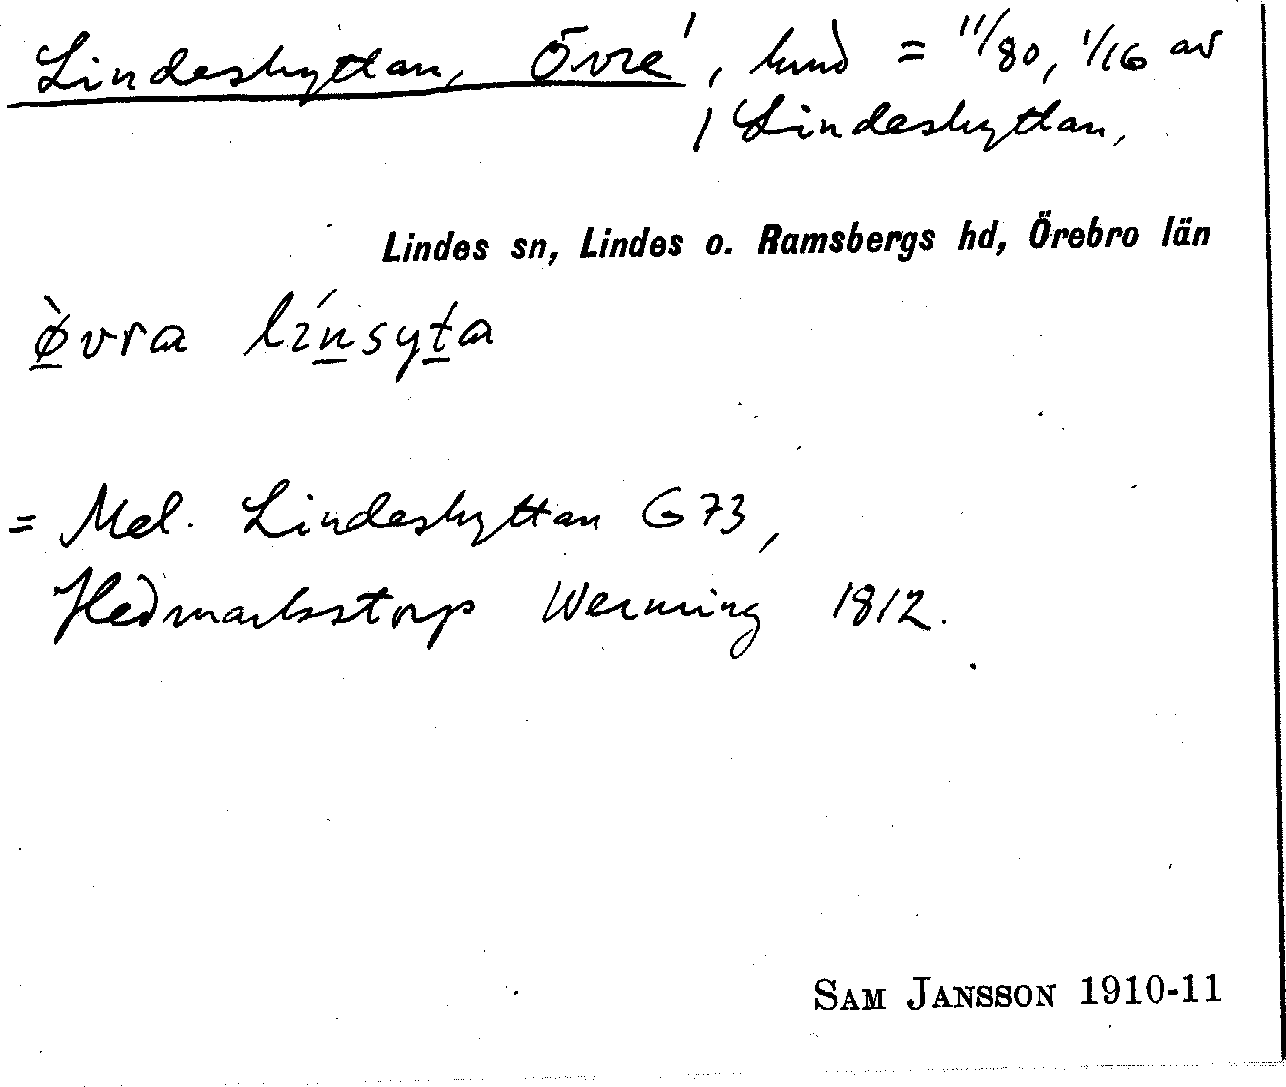 Lindeshyttan, Övre, hmd = 11/80, 1/16 av
Lindeshyttan,
Lindes sn, Lindes o. Ramsbergs hd, Örebro län
ø̀vra línsyta
= Mel. Lindeshyttan G73,
Hedmarkstorp Werming 1812.
SAM JANSSON 1910-11